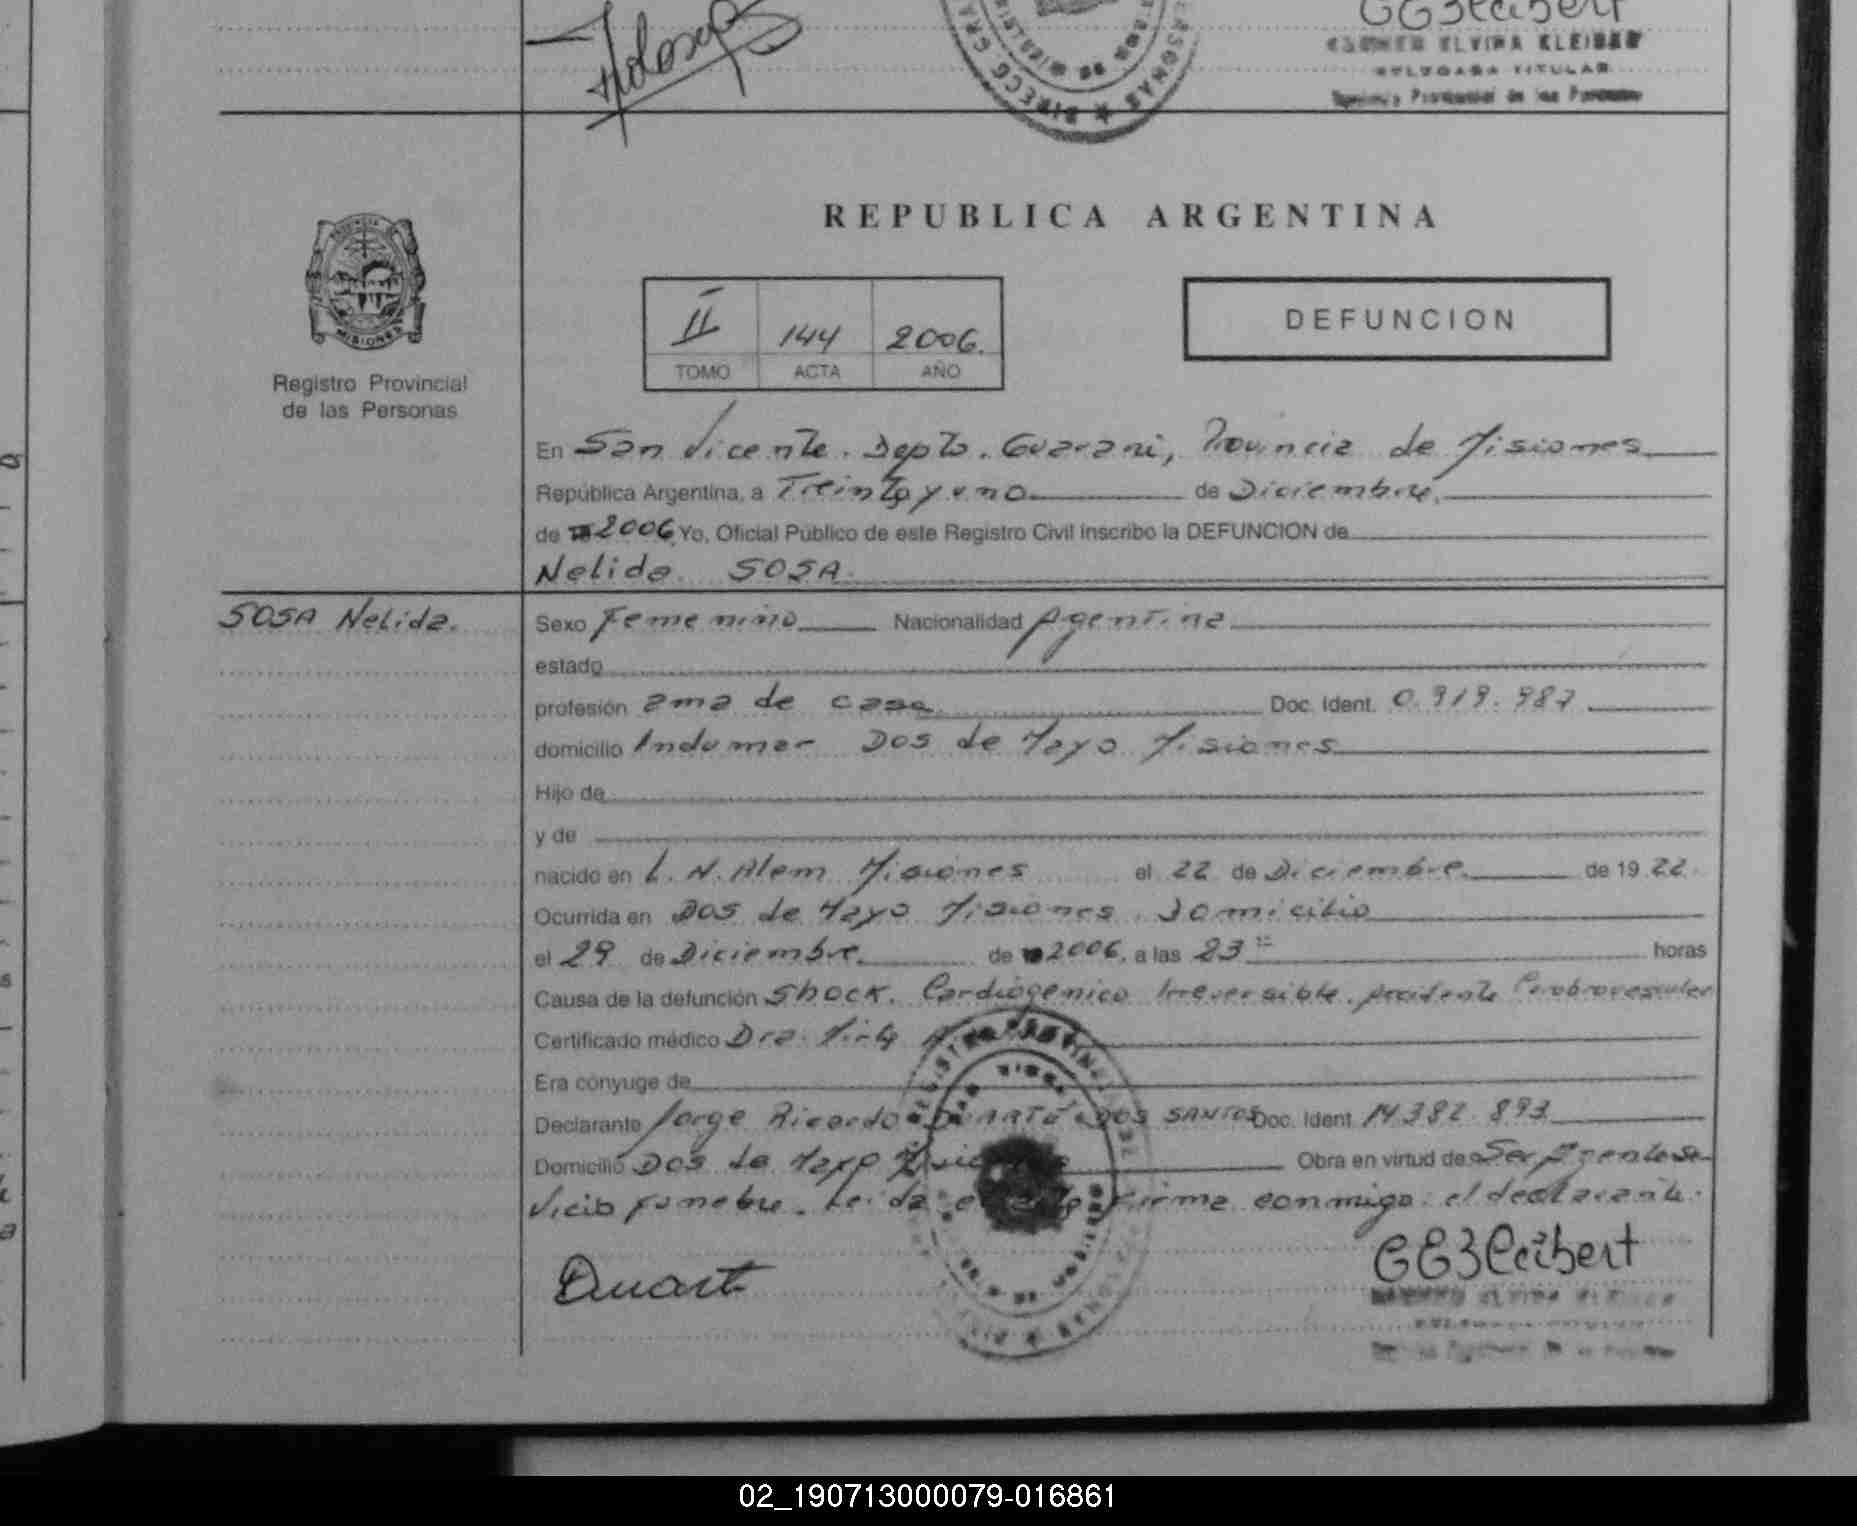 CARMEN ELVIRA KLEIBER
DELEGADA TITULAR
Registro Provincial de las Personas
REPUBLICA ARGENTINA
PROVINCIA
MISIONES
Registro Provincial
de las Personas
II 144 2006.
TOMO ACTA AÑO
DEFUNCION
En San Vicente. Depto. Guarani, Provincia de Misiones
República Argentina, a Treinta y uno de Diciembre.
de 2006 Yo, Oficial Público de este Registro Civil inscribo la DEFUNCION de
Nelida SOSA.
SOSA Nelida.
Sexo Femenino Nacionalidad Agentina
estado
profesión ama de casa Doc. Ident. 0.919.987
domicilio Indumar Dos de Mayo Misiones
Hijo de
y de
nacido en L. N. Alem Misiones el 22 de Diciembre de 19 22.
Ocurrida en Dos de Mayo Misiones. Domicilio
el 29 de Diciembre de 2006, a las 23 horas
Causa de la defunción Shock. Cardiogenico Irreversible. Accidente Cerebrovascular
Certificado médico Dra.
Era cónyuge de
Declarante Jorge Ricardo DOS SANTOS Doc. Ident. 14.382.893
Domicilio Dos de Mayo Misiones Obra en virtud de Ser Agente Se
vicio funebre. Leida el acta firma conmigo el declarante.
Duarte
02_190713000079-016861